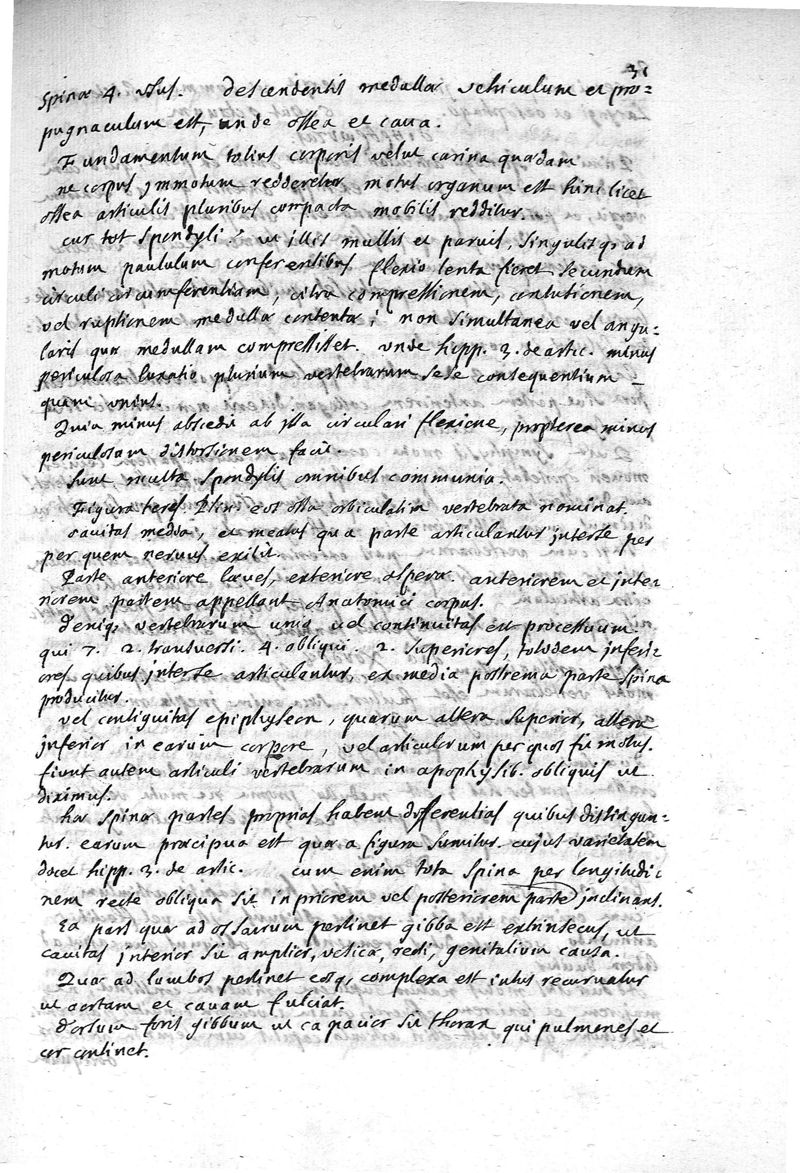 31
Spinæ 4. usus. descendentis medullæ vehiculum et pro=
pugnaculum est, unde ossea et cava.
Fundamentum totius corporis velut carina quædam
ne corpus immotum redderetur motus organum est hinc licet
ossea articulis pluribus compacta mobilis redditur.
cur tot spondyli? ut illis multis et parvis, singulisq; ad
motum paululum conferentibus flexio lenta fieret secundum
circuli circumferentiam, citra compressionem, contusionem,
vel ruptionem medullæ contentæ; non simultanea vel angu=
laris quæ medullam compressisset. unde hipp. 3. de artic. minus
periculosa luxatio plurium vertebrarum sese consequentium
quam unius.
Quia minus abscedit ab illa circulari flexione, propterea minus
periculosam distortionem facit.
Sunt multa spondylis omnibus communia.
Figura teres Plin. eos ossa orbiculatim vertebrata nominat.
cavitas media, et meatus qua parte articulantur inter se per
per quem nervus exilit.
Parte anteriore læves, exteriore asperæ. anteriorem et inte=
riorem partem appellant Anatomici corpus.
deniq; vertebrarum una vel continuitas est processuum.
qui 7. 2. transversi. 4. obliqui. 2. superiores, totidem inferi=
ores quibus inter se articulantur, ex media postrema parte spina
producitur.
vel contiguitas epiphyseon, quarum altera superior, altera
inferior in earum corpore, vel articulorum per quos fit motus.
fiunt autem articuli vertebrarum in apophysib. obliquis ut
diximus.
hæ spinæ partes proprias habent differentias quibus distingun=
tur. earum præcipua est quæ a figura sumitur. cujus varietatem
docet hipp. 3. de artic. cum enim tota spina per longitudi
nem recte obliqua sit in priorem vel posteriorem parte inclinans.
Ea pars quæ ad os sacrum pertinet gibba est extrinsecus, ut
cavitas interior sit amplior, vesicæ, recti, genitalium causa.
Quæ ad lumbos pertinet eosq; complexa est intus recurvatur
ut aortam et cavam fulciat.
dorsum foris gibbum ut capacior sit thorax qui pulmones et
cor continet.